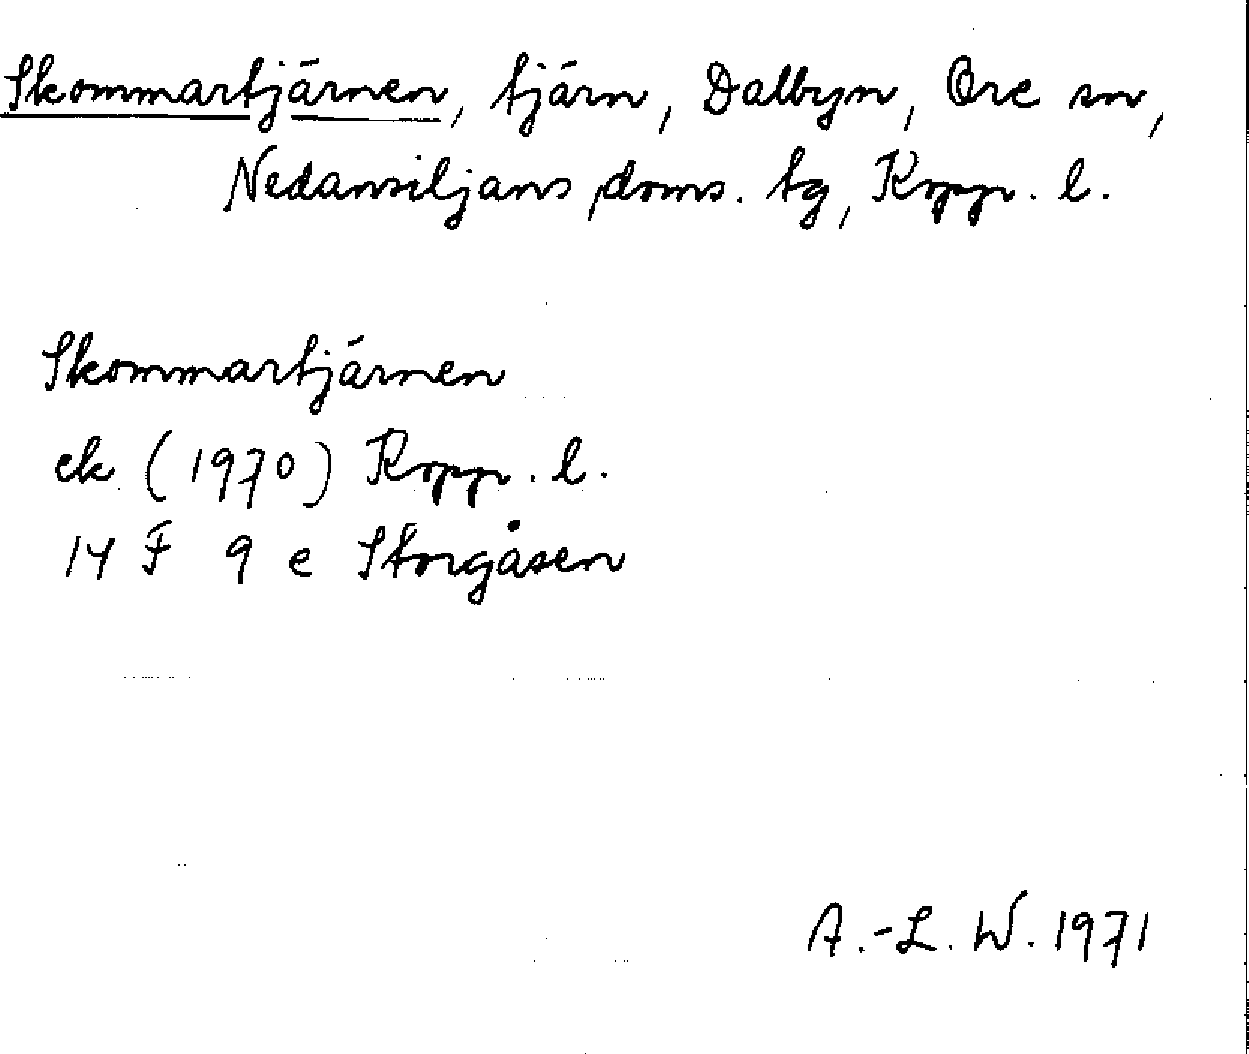 Skommartjärnen, tjärn, Dalbyn, Ore sn,
Nedansiljans doms. tg, Kopp. l.
Skommartjärnen
ek (1970) Kopp. l.
14 F 9 e Storgåsen
A.-L. W. 1971